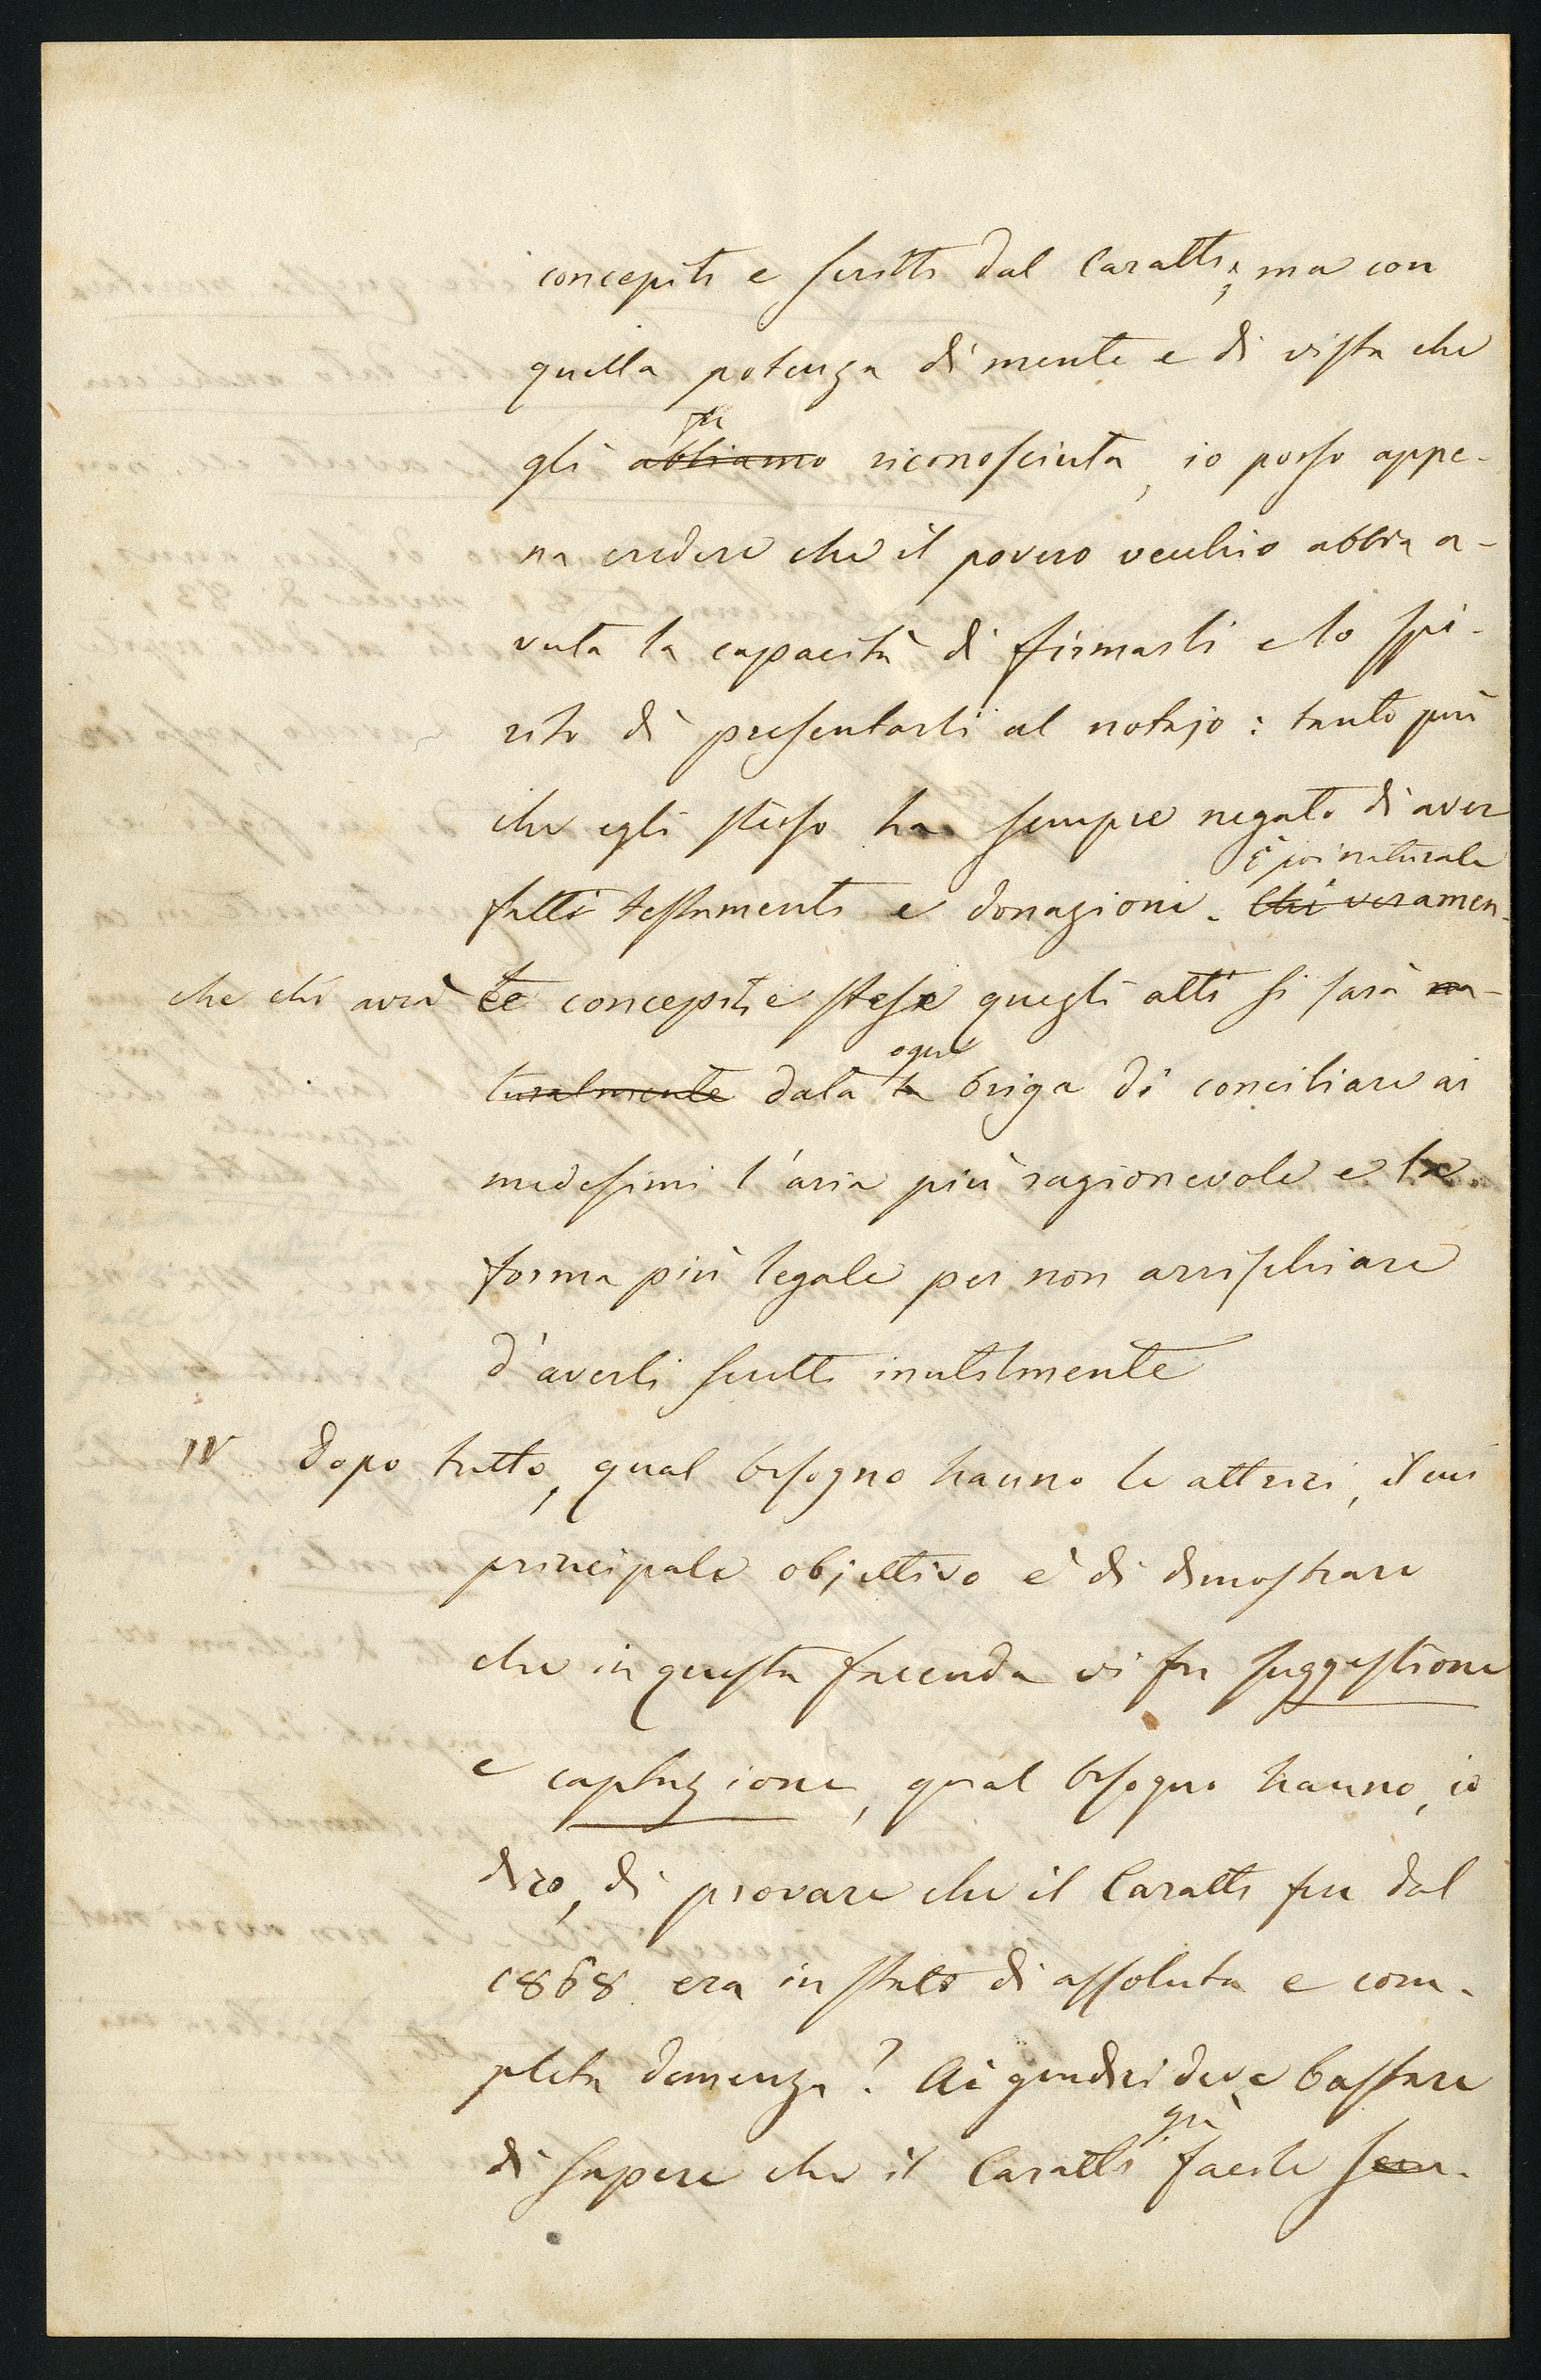 concepiti e scritti dal Caratti; ma con
quella potenza di mente e di vista che
fu
gli abbiamo riconosciuta, io posso appe-
na credere che il povero vecchio abbia a-
vuta la capacità di firmarli e lo spi-
rito di presentarli al notajo: tanto più
che egli stesso ha sempre negato di aver
È poi naturale
fatti testamenti e donazioni. Chi veramen-
che chi avrà te concepiti e stese quegli atti si sarà na-
ogni
turalmente data la briga di conciliare ai
medesimi l'aria più ragionevole e la
forma più legale per non arrischiare
d'averli scritti inutilmente
IV Dopo tutto, qual bisogno hanno le attrici, il cui
principale objettivo è di dimostrare
che in questa faccenda vi fu suggestione
e captazione, qual bisogno hanno, io
dirò, di provare che il Caratti fin dal
1868 era in stato di assoluta e com-
pleta demenza? Ai giudici deve bastare
già
di sapere che il Caratti facile sem-